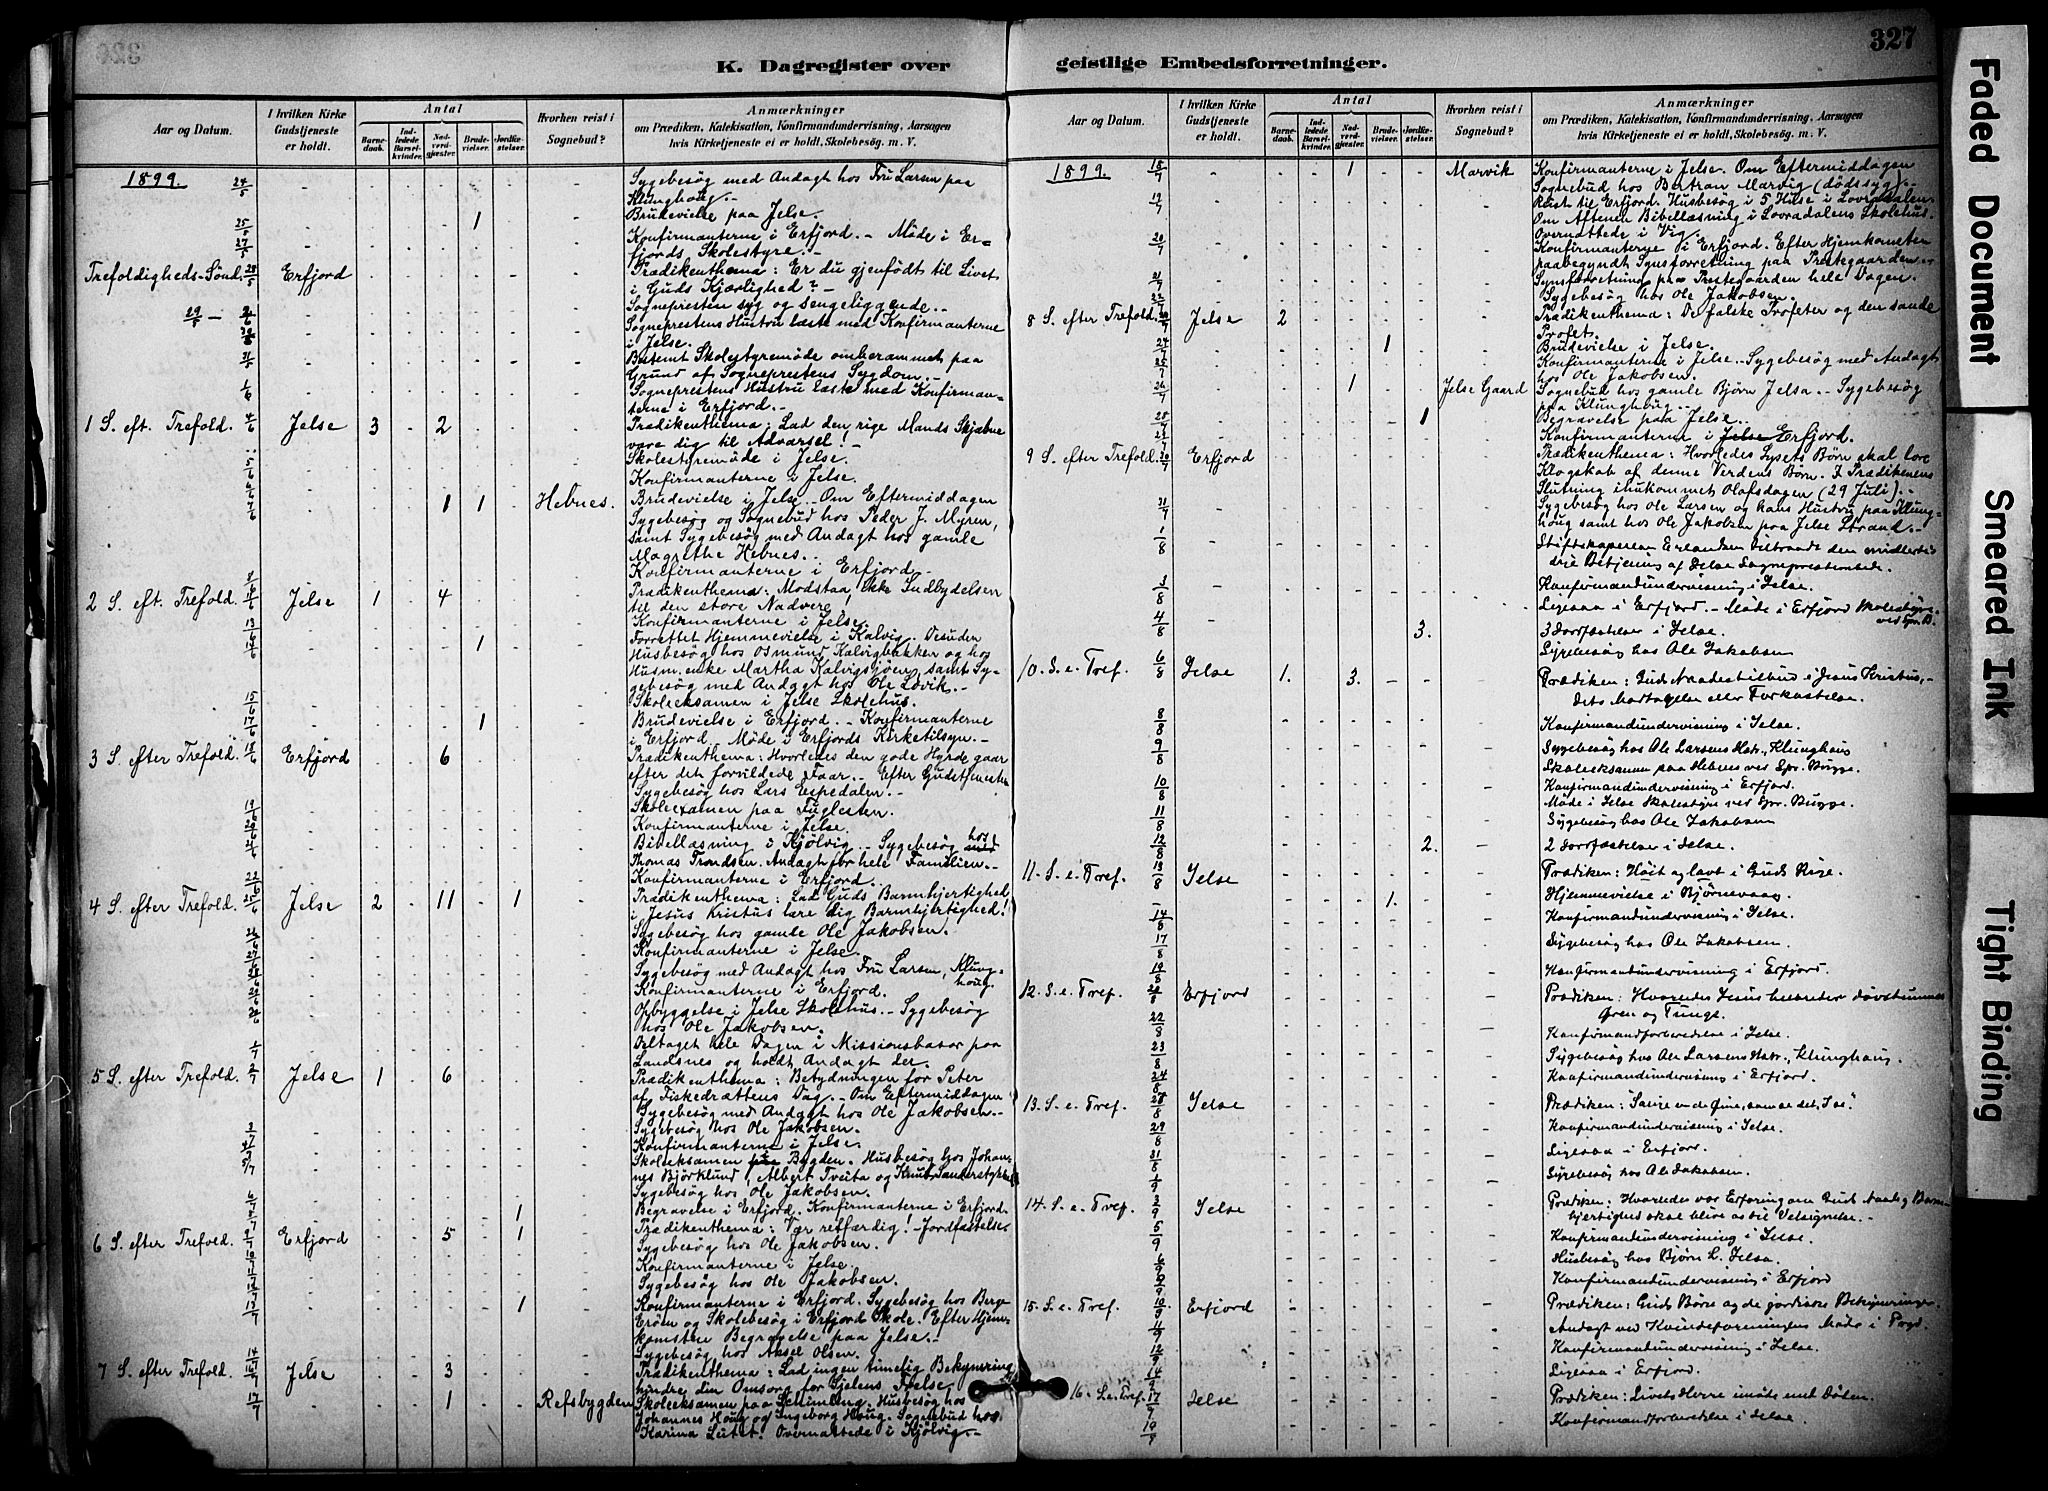 327
K. Dagregister over geistlige Embedsforretninger.
Aar og Datum.
I hvilken Kirke Gudstjeneste er holdt.
Antal
Barnedaab.
Indledede Barselkvinder.
Nadverdgjæster.
Brudevielser.
Jordfæstelser.
Hvorhen reist i Sognebud?
Anmærkninger
om Prædiken, Katekisation, Konfirmandundervisning, Aarsagen
hvis Kirketjeneste ei er holdt, Skolebesög. m. V.
1899. 24/5 Sygebesøg med Andagt hos Fru Larsen paa
Klunghoug.-
25/5 1 Brudevielse paa Jelse.
27/5 Konfirmanterne i Erfjord. - Møde i Er=
fjords Skolestyre.-
Trefoldigheds-Sønd. 28/5 Erfjord Prædikenthema: Er du gjenfødt til Livet
i Guds Kjærlighed? -
29/5 - Sognepresten syg og sengeliggende.-
Sogneprestens Hustru læste med Konfirmanterne
i Jelse.
31/5 Bestemt Skolestyremøde omberammet paa
Grund af Sogneprestens Sygdom.-
1/6 Sogneprestens Hustru læste med Konfirman-
terne i Erfjord.-
1 S. eft. Trefold. 4/6 Jelse 3 2 Prædikenthema: Lad den rige Mands Skjæbne
være dig til Advarsel!
5/6 Skolestyremøde i Jelse.
6/6 Konfirmanterne i Jelse.
7/6 1 1 Hebnes. Brudevielse i Jelse.- Om Eftermiddagen
Sygebesøg og Sognebud hos Peder J. Myren,
samt Sygebesøg med Andagt hos gamle
Magrethe Hebnes.-
8/6 Konfirmanterne i Erfjord.-
2 S. eft. Trefold. Jelse 1 4 Prædikenthema: Modstaa ikke Indbydelsen
til den store Nadvere!
13/6 Konfirmanterne i Jelse.
14/6 1 Forrettet Hjemmevielse i Kalvig. Desuden
Husbesøg hos Osmund Kalvigbakken og hos
Husm.enke Martha Kalvigsjøen, samt Sy-
gebesøg med Andagt hos Ole Løvik.-
15/6 Skoleeksamen i Jelse Skolehus.
17/6 1 Brudevielse i Erfjord.- Konfirmanterne
i Erfjord. Møde i Erfjords Kirketilsyn.-
3 S. efter Trefold. 18/6 Erfjord 6 Prædikenthema: Hvorledes den gode Hyrde gaar
efter det forvildede Faar.- Efter Gudstjenesten
Sygebesøg hos Lars Espedalen.-
19/6 Skoleexamen paa Fuglesten.
20/6 Konfirmanterne i Jelse.
21/6 Bibellæsning i Kjølvig.- Sygebesøg hos
Thomas Trondsen. Andagt for hele Familien.-
22/6 Konfirmanterne i Erfjord.-
4 S. efter Trefold. 25/6 Jelse 2 11 1 Prædikenthema: Lad Guds Barmhjertighed
i Jesus Kristus lære dig Barmhjertighed!
26/6 Sygebesøg hos gamle Ole Jakobsen.
27/6 Konfirmanterne i Jelse.
28/6 Sygebesøg med Andagt hos Fru Larsen, Klung-
houg.
29/6 Konfirmanterne i Erfjord.
Opbyggelse i Jelse Skolehus.- Sygebesøg
hos Ole Jakobsen.
1/7 Deltaget hele Dagen i Missionsbasar paa
Landsnes og holdt Andagt der.
5 S. efter Trefold. 2/7 Jelse 1 6 Prædikenthema: Betydningen for Peter
af Fiskedrættens Dag.- Om Eftermiddagen
Sygebesøg med Andagt hos Ole Jakobsen.-
3/7 Sygebesøg hos Ole Jakobsen.
4/7 Konfirmanterne i Jelse.
5/7 Skoleeksamen Bygden. Husbesøg hos Johan-
nes Bjørklund, Albert Tveita og Knut
Sygebesøg hos Ole Jakobsen.
6/7 1 Begravelse i Erfjord. Konfirmanterne i Erfjord.
6 S. efter Trefold. 9/7 Erfjord 5 1 Prædikenthema: Vær retfærdig! - Jordfæstelse
Sygebesøg hos Ole Jakobsen.
11/7 Konfirmanterne i Jelse.
12/7 Sygebesøg hos Ole Jakobsen.
13/7 1 Konfirmanterne i Erfjord. Sygebesøg hos Berge
Erøen og Skolebesøg i Erfjord Skole. Efter Hjem-
komsten Begravelse paa Jelse.-
14/7 Sygebesøg hos Aksel Olsen.
7 S. efter Trefold. 16/7 Jelse 3 Prædikenthema: Lad ingen timelig Bekymring
hindre din Omsorg for Sjælens Frelse.
17/7 1 Refsbygden Skoleeksamen paa Husbesøg hos
Johannes Houg og Ingeborg Houg. Sognebud hos
Karina Overnattede i Kjølvig.-
1899. 18/7 1 Marvik Konfirmanterne i Jelse. Om Eftermiddagen
Sognebud hos Bertran Marvig (dødssyg).-
19/7 Reist til Erfjord. Husbesøg i 5 Huse i Lovradalen.
Om Aftenen Bibellæsning i Lovradalens Skolehus.
Overnattede i Vig.
20/7 Konfirmanterne i Erfjord. Efter Hjemkomsten
paabegyndt Synsforretning paa Prestegaarden.-
21/7 Synsforretning paa Prestegaarden hele Dagen.
22/7 Sygebesøg hos Ole Jakobsen.
8 S. efter Trefold. Jelse 2 Prædikenthema: De falske Profeter og den sande
Profet.
24/7 1 Brudevielse i Jelse.
25/7 Konfirmanterne i Jelse.- Sygebesøg med Andagt
hos Ole Jakobsen.
26/7 1 Jelse Gaard Sognebud hos gamle Bjørn Jelsa.- Sygebesøg
paa Klunghoug.-
1 Begravelse paa Jelse.-
Konfirmanterne i Jelse Erfjord.
9 S. efter Trefold. 30/7 Erfjord Prædikenthema: Hvorledes Lysets Børn skal lære
Klogskab af denne Verdens Børn. I Prædikenens
Slutning ihukommet Olafsdagen (29 Juli).-
31/7 Sygebesøg hos Ole Larsen og hans Hustru paa Klung-
houg samt hos Ole Jakobsen paa Jelse Strand.-
1/8 Stiftskapellan Erlandsen tiltraadte den midlerti-
die Betjening af Jelse Sogneprestembede.
3/8 Konfirmandundervisning i Jelse.
Ligesaa i Erfjord.- Møde i Erfjord Skolestyre.
4/8 3. 3 Jordfæstelser i Jelse.
Sygebesøg hos Ole Jakobsen
10. S. e. Tref. 6/8 Jelse 1. 3. Prædiken: Guds Naadestilbud i Jesus Kristus,-
Dets Modtagelse eller Forkastelse.
8/8 Konfirmandundervisning i Jelse.
9/8 Sygebesøg hos Ole Larsens Hstr., Klunghaug
Skoleeksamen paa Hebnes ved Spr. Bugge.
10/8 Konfirmandundervisning i Erfjord.
Møde i Jelse Skolestyre ved Spr. Bugge.
11/8 Sygebesøg hos Ole Jakobsen
12/8 2. 2 Jordfæstelser i Jelse.
11. S. e. Tref. 13/8 Jelse Prædiken: Høit og lavt i Guds Rige.
1. Hjemmevielse i Bjørnevaag.
14/8 Konfirmandundervisning i Jelse.
17/8 Sygebesøg hos Ole Jakobsen.
19/8 Konfirmandundervisning i Erfjord.
12. S. e. Tref. 20/8 Erfjord Prædiken: Hvorledes Jesus helbreder døvstummes
Øren og Tunge.
22/8 Konfirmandforberedelse i Jelse.
23/8 Sygebesøg hos Ole Larsens Hstr., Klunghaug.
24/8 Konfirmandundervisning i Erfjord.
13. S. e. Tref. Jelse Prædiken: Salige er de Øine, som se det, I se."
29/8 Konfirmandundervisning i Jelse.
31/8 Ligesaa i Erfjord.
1/9 Sygebesøg hos Ole Jakobsen.
14. S. e. Tref. 3/9 Jelse Prædiken: Hvorledes vor Erfaring om Guds Naade og Barm-
hjertighed skal blive os til Velsignelse.-
5/9 Konfirmandundervisning i Jelse.
6/9 Husbesøg hos Bjørn L. Jelsa.
Konfirmandundervisning i Erfjord
15. S. e. Tref. 10/9 Erfjord Prædiken: Guds Børn og de jordiske Bekymringer.
11/9 Andagt ved Kvindeforeningens Møde i
12/9 Konfirmandundervisning i Jelse.
14/9 Ligesaa i Erfjord.
16. S. e. Tref. 17/9 Jelse Prædiken: Livets Herre imøte med Døden.
19/9 Konfirmandforberedelse i Jelse.
Faded Document
Smeared Ink
Tight Binding